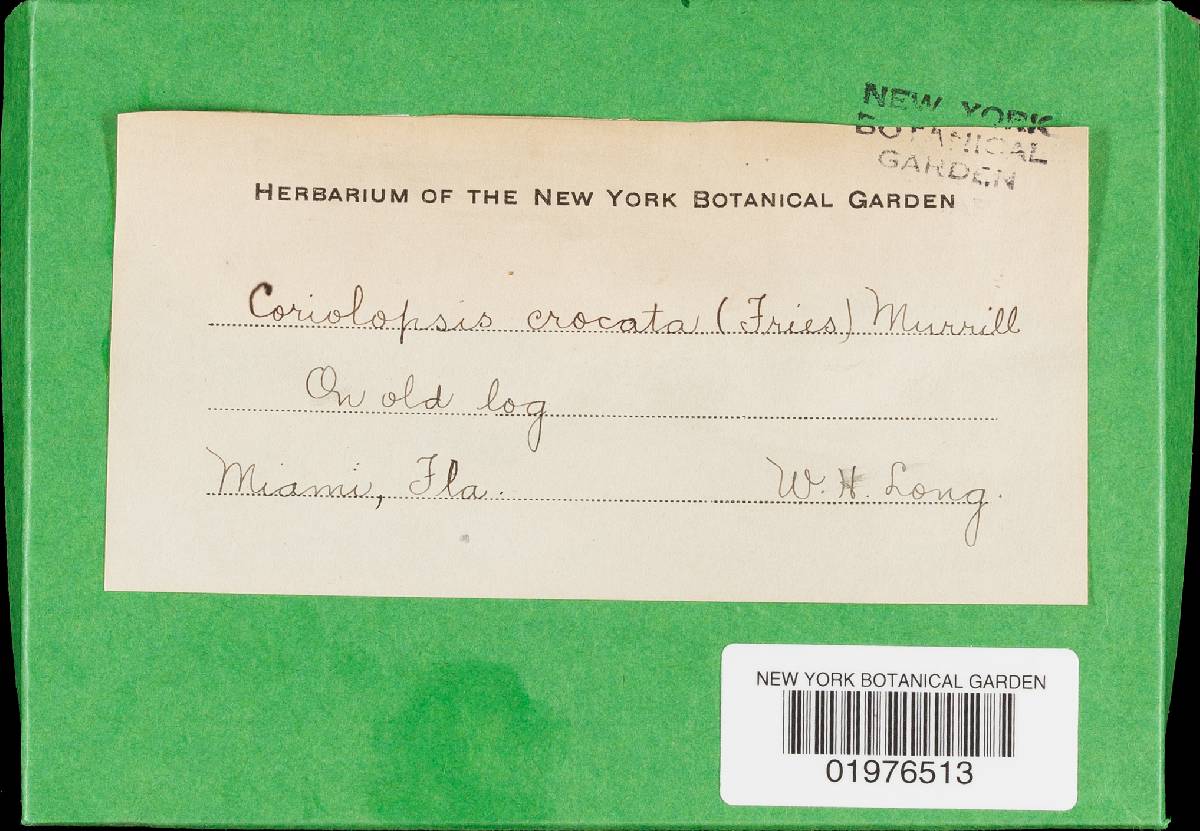 NEW YORK
BOTANICAL
GARDEN
HERBARIUM OF THE NEW YORK BOTANICAL GARDEN
Coriolopsis crocata (Fries) Murrill
On old log
Miami, Fla.
W. H. Long.
NEW YORK BOTANICAL GARDEN
01976513